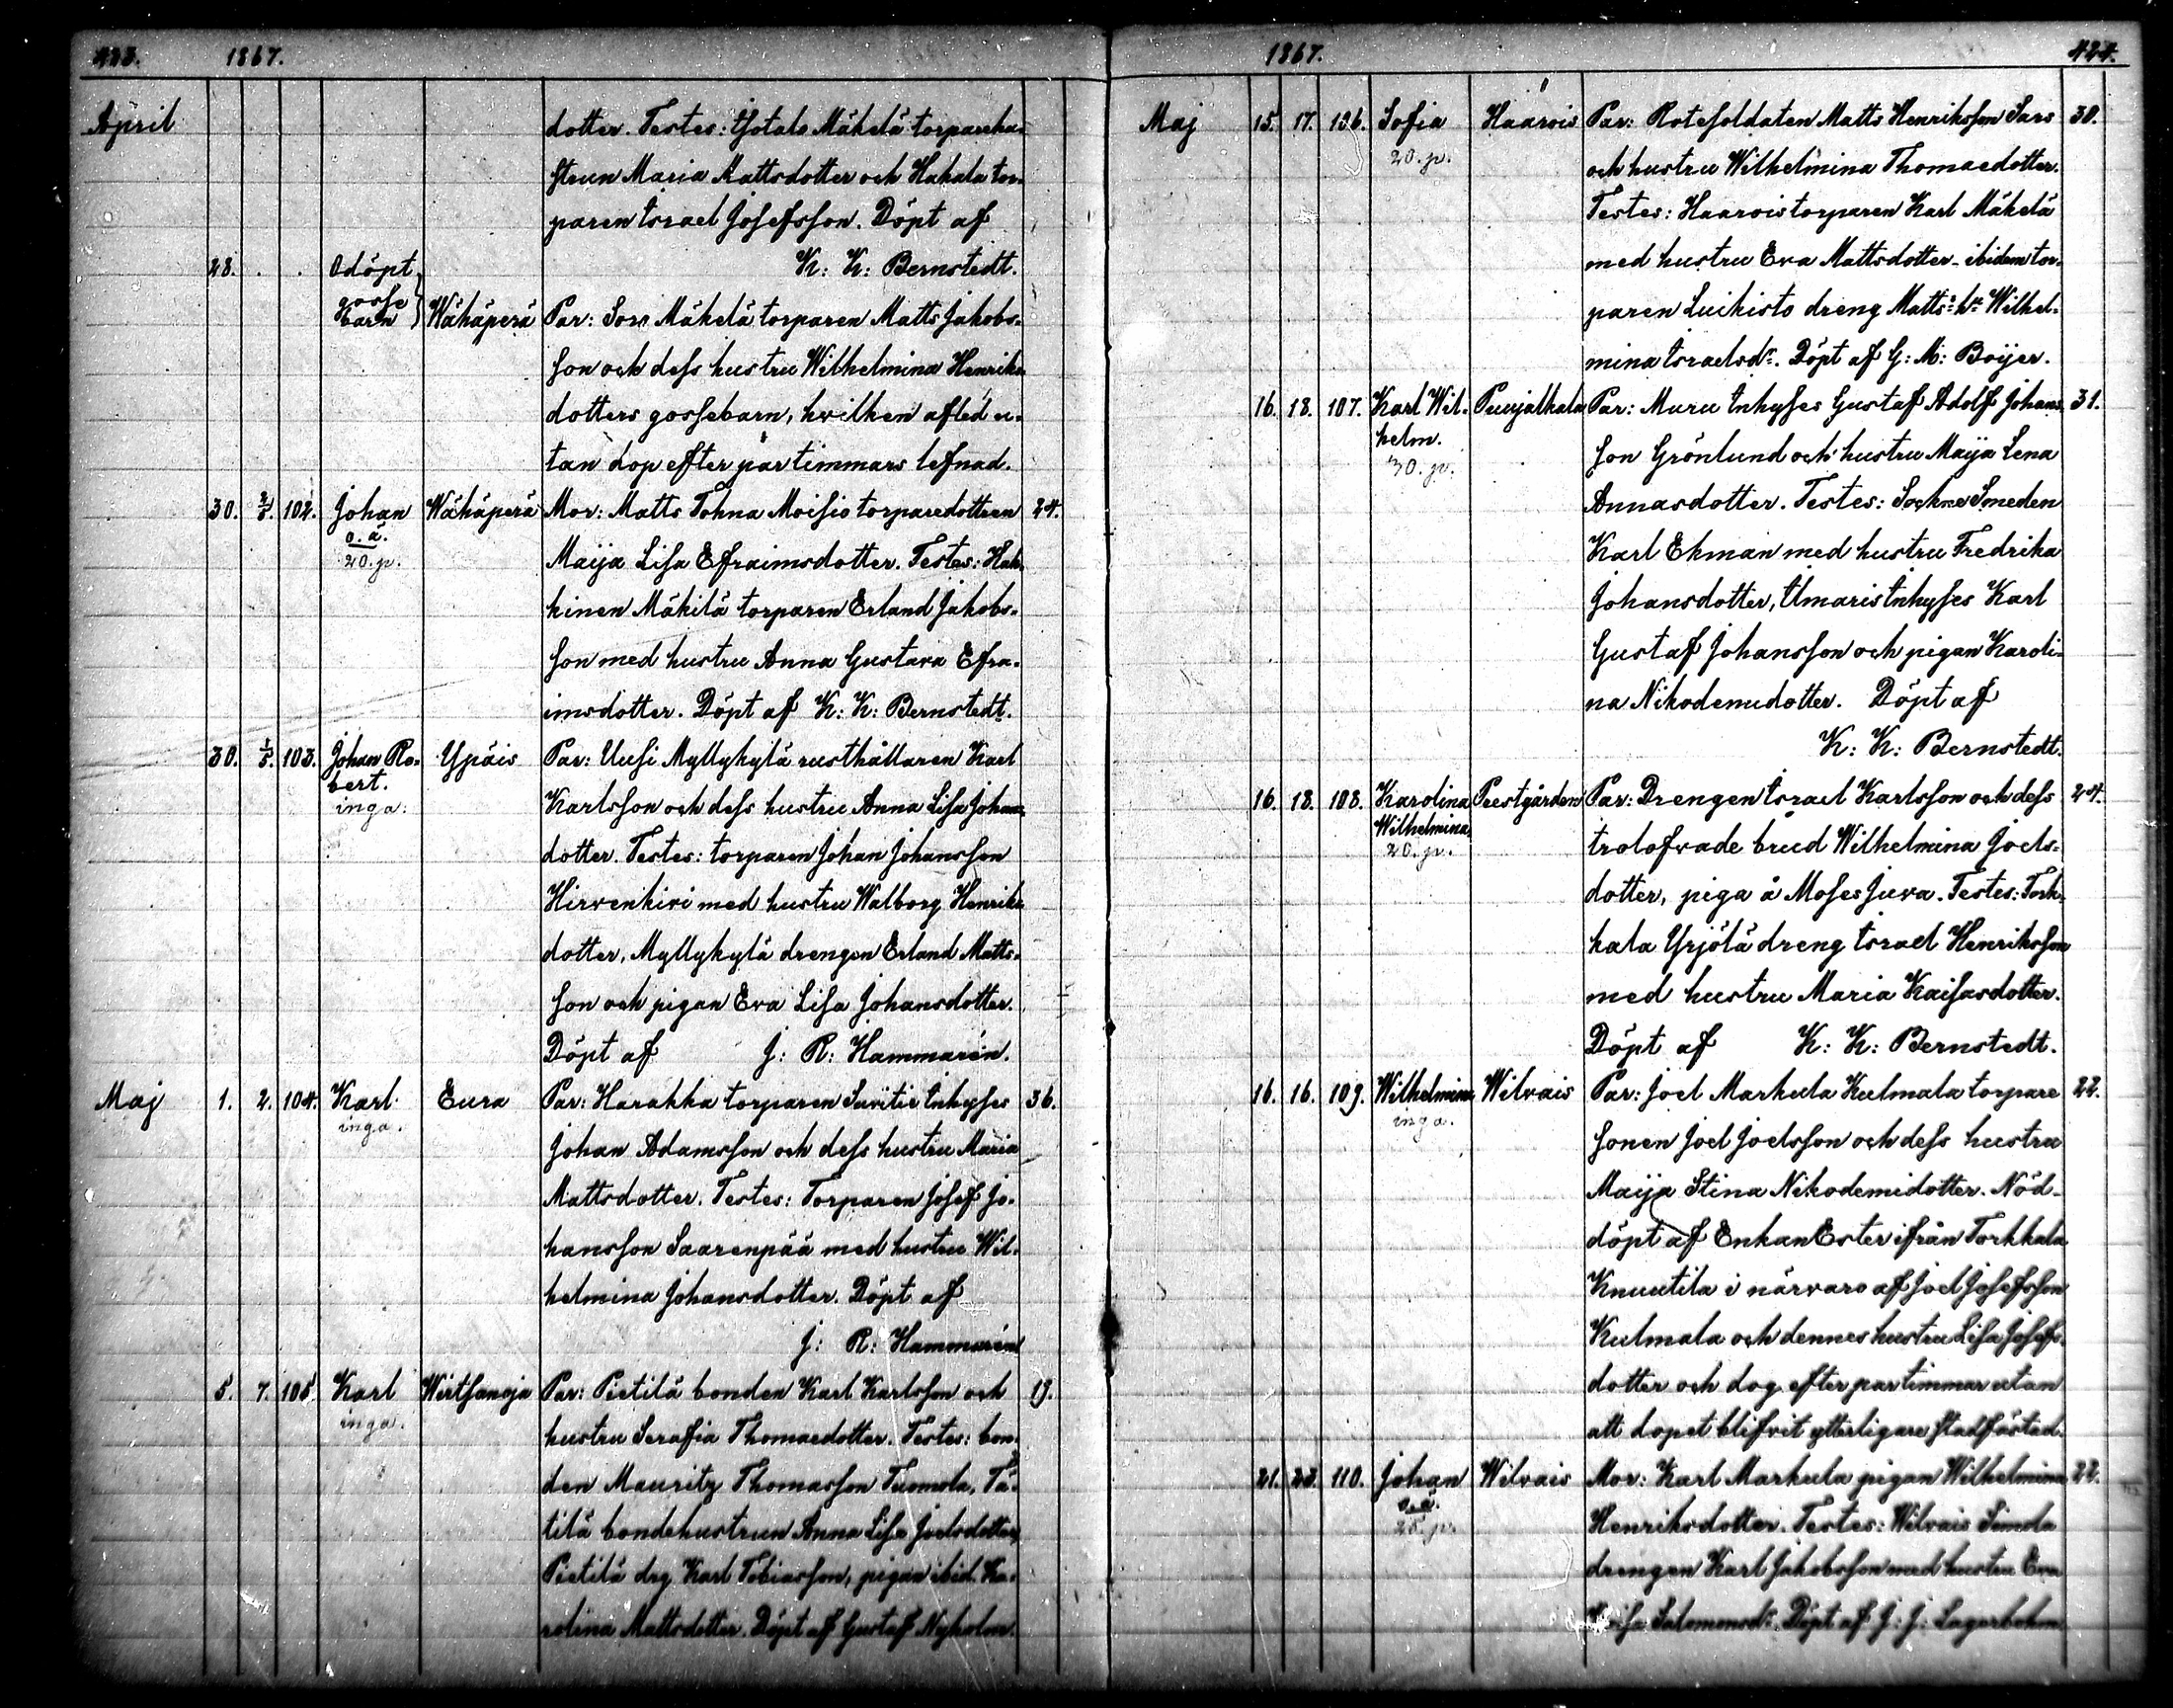 423. 1867.
April dotter. Testes: Isotalo Mäkelä torparehu-
strun Maria Mattsdotter och Hakala tor-
paren Israel Josefsson. Döpt af
28. . . Odöpt K: K: Bernstedt.
gosse
barn Wähäperä Par: Soro Mäkelä torparen Matts Jakobs-
son och dess hustru Wilhelmina Henriks
dotters gossebarn, hvilken afled u-
tan dop efter par timmars lefnad.
30. 2/5. 102. Johan Wähäperä Mor: Matts Tohna Moisio torparedottren 24.
o. ä.
20. p. Maija Lisa Efraimsdotter. Testes: Hak-
kinen Mäkilä torparen Erland Jakobs-
son med hustru Anna Gustava Efra-
imsdotter. Döpt af K: K: Bernstedt.
30. 1/5. 103. Johan Ro- Ypäis Par: Uusi Myllykylä rusthållaren Karl
bert.
inga. Karlsson och dess hustru Anna Lisa Johans
dotter. Testes: torparen Johan Johansson
Hirvenkivi med hustru Walborg Henriks
dotter, Myllykylä drengen Erland Matts-
son och pigan Eva Lisa Johansdotter.
Döpt af J: R: Hammarén.
Maj 1. 2. 104. Karl Eura Par: Harakka torparen Inhyses 36.
inga.
Johan Adamsson och dess hustru Maria
Mattsdotter. Testes: Torparen Josef Jo-
hansson Saarenpää med hustru Wil-
helmina Johansdotter. Döpt af
J: R: Hammarén
5. 7. 105. Karl Wirtsanoja Par: Pietilä bonden Karl Karlsson och 19.
inga. hustru Serafia Thomasdotter. Testes: bon-
den Mauritz Thomasson Tuomola, Tä-
tilä bondehustrun Anna Lisa Joelsdotter,
Pietilä drg Karl Tobiasson, pigan ibid. Ka-
rolina Mattsdotter. Döpt af Gustaf Nyholm.
1867. 424.
Maj 15. 17. 106. Sofia Haarois Par: Rotesoldaten Matts Henriksson Sars 30.
20. p. och hustru Wilhelmina Thomasdotter.
Testes: Haarois torparen Karl Mäkelä
med hustru Eva Mattsdotter - ibidem tor-
paren Luikisto dreng Matts: hu Wilhel-
mina Israelsdr. Döpt af G: M: Boijer.
16. 18. 107. Karl Wil- Puujalkala Par: Muru Inhyses Gustaf Adolf Johans 31.
helm.
30. p. son Grönlund och hustru Maija Lena
Annasdotter. Testes: Sockne Smeden
Karl Ekman med hustru Fredrika
Johansdotter, Ilmaris Inhyses Karl
Gustaf Johansson och pigan Karoli-
na Nikodemidotter. Döpt af
K: K: Bernstedt.
16. 18. 108. Karolina Prestgården Par: Drengen Israel Karlsson och dess 24.
Wilhelmina
20. p. trolofvade brud Wilhelmina Joels-
dotter, piga å Moses Juva. Testes: Tork-
kala Yrjölä dreng Israel Henriksson
med hustru Maria Kaisasdotter.
Döpt af K: K: Bernstedt.
16. 16. 109. Wilhelmina Wilvais Par: Joel Markula Kulmala torpare 22.
inga.
sonen Joel Joelsson och dess hustru
Maija Stina Nikodemidotter. Nöd-
döpt af Enkan Ester ifrån Torkkala
Knuutila i närvaro af Joel Josefsson
Kulmala och dennes hustru Lisa Josefs-
dotter och dog efter par timmar utan
att dopet blifvit ytterligare stadfästad.
21. 23. 110. Johan Wilvais Mor: Karl Markula pigan Wilhelmina 22.
o. ä.
20. p. Henriksdotter. Testes: Wilvais Simola
drengen Karl Jakobsson med hustru Eva
Salomonsdr. Döpt af J: J: Lagerbohm